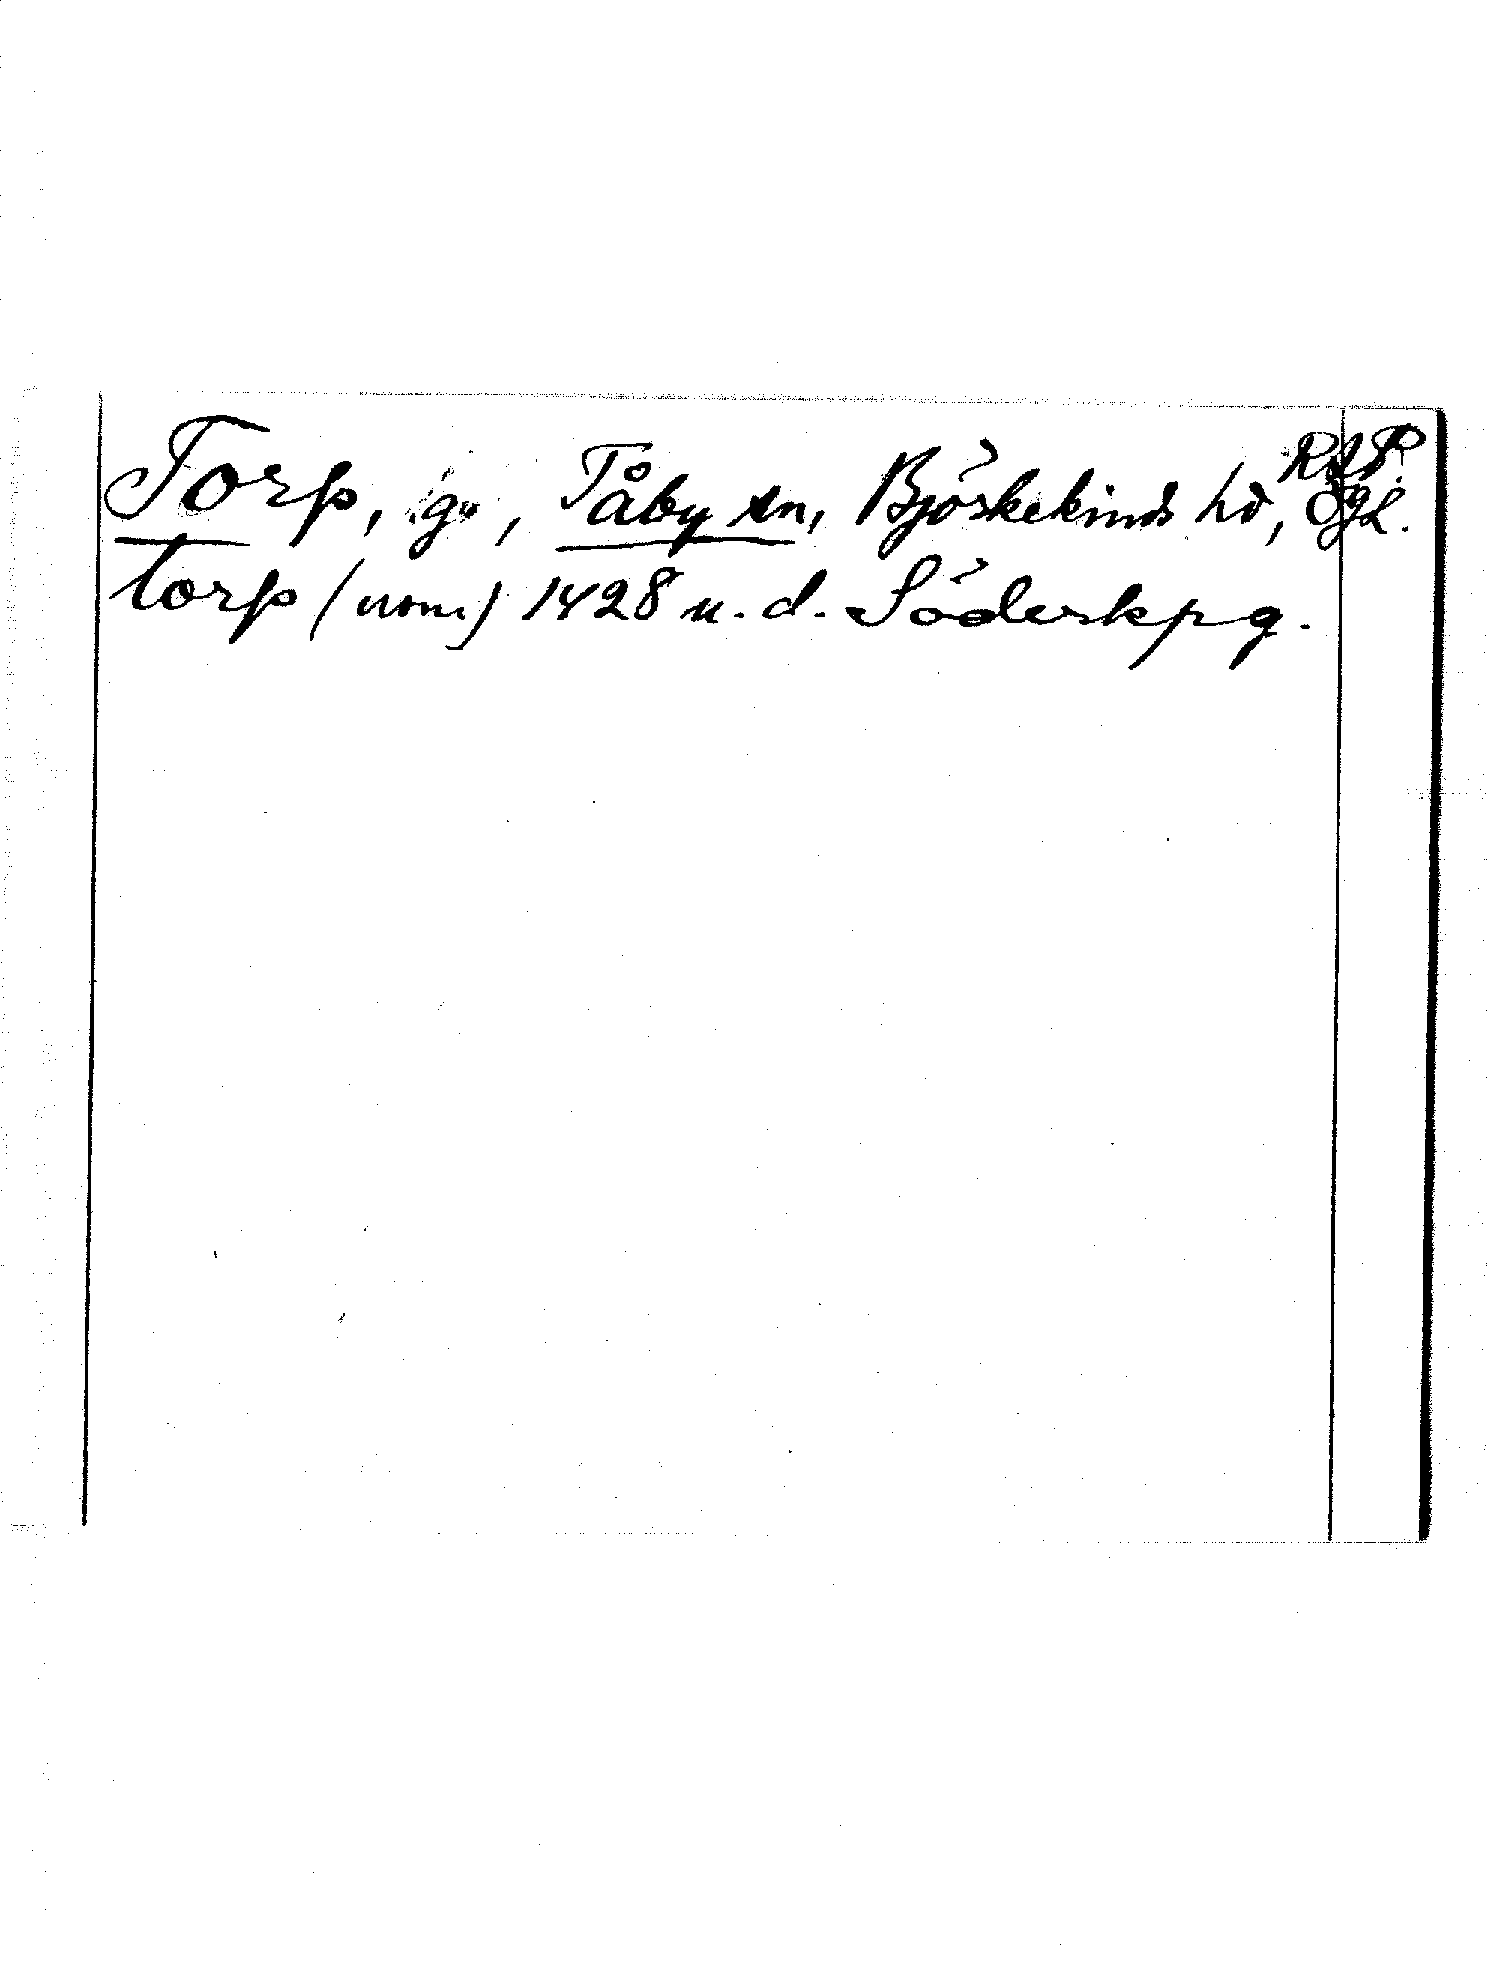 RAP.
Torp, g, Tåby sn, Björkekinds hd, Ögl.
torp (nom.) 1428 u. d. Söderkpg.